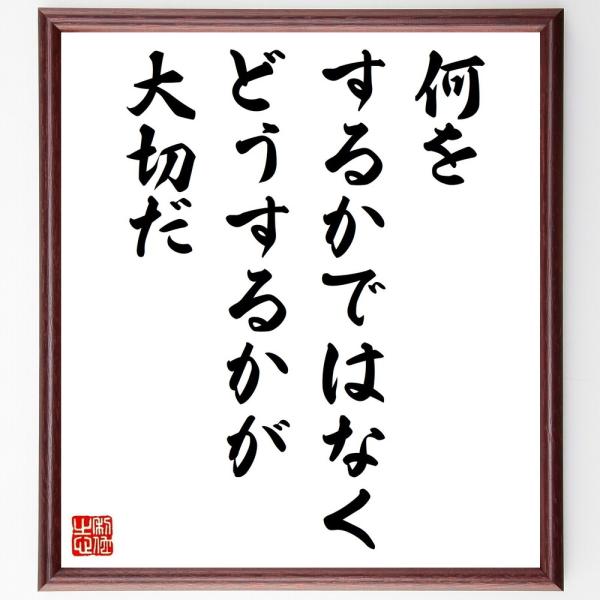 何を
するかではなく
どうするかが
大切だ